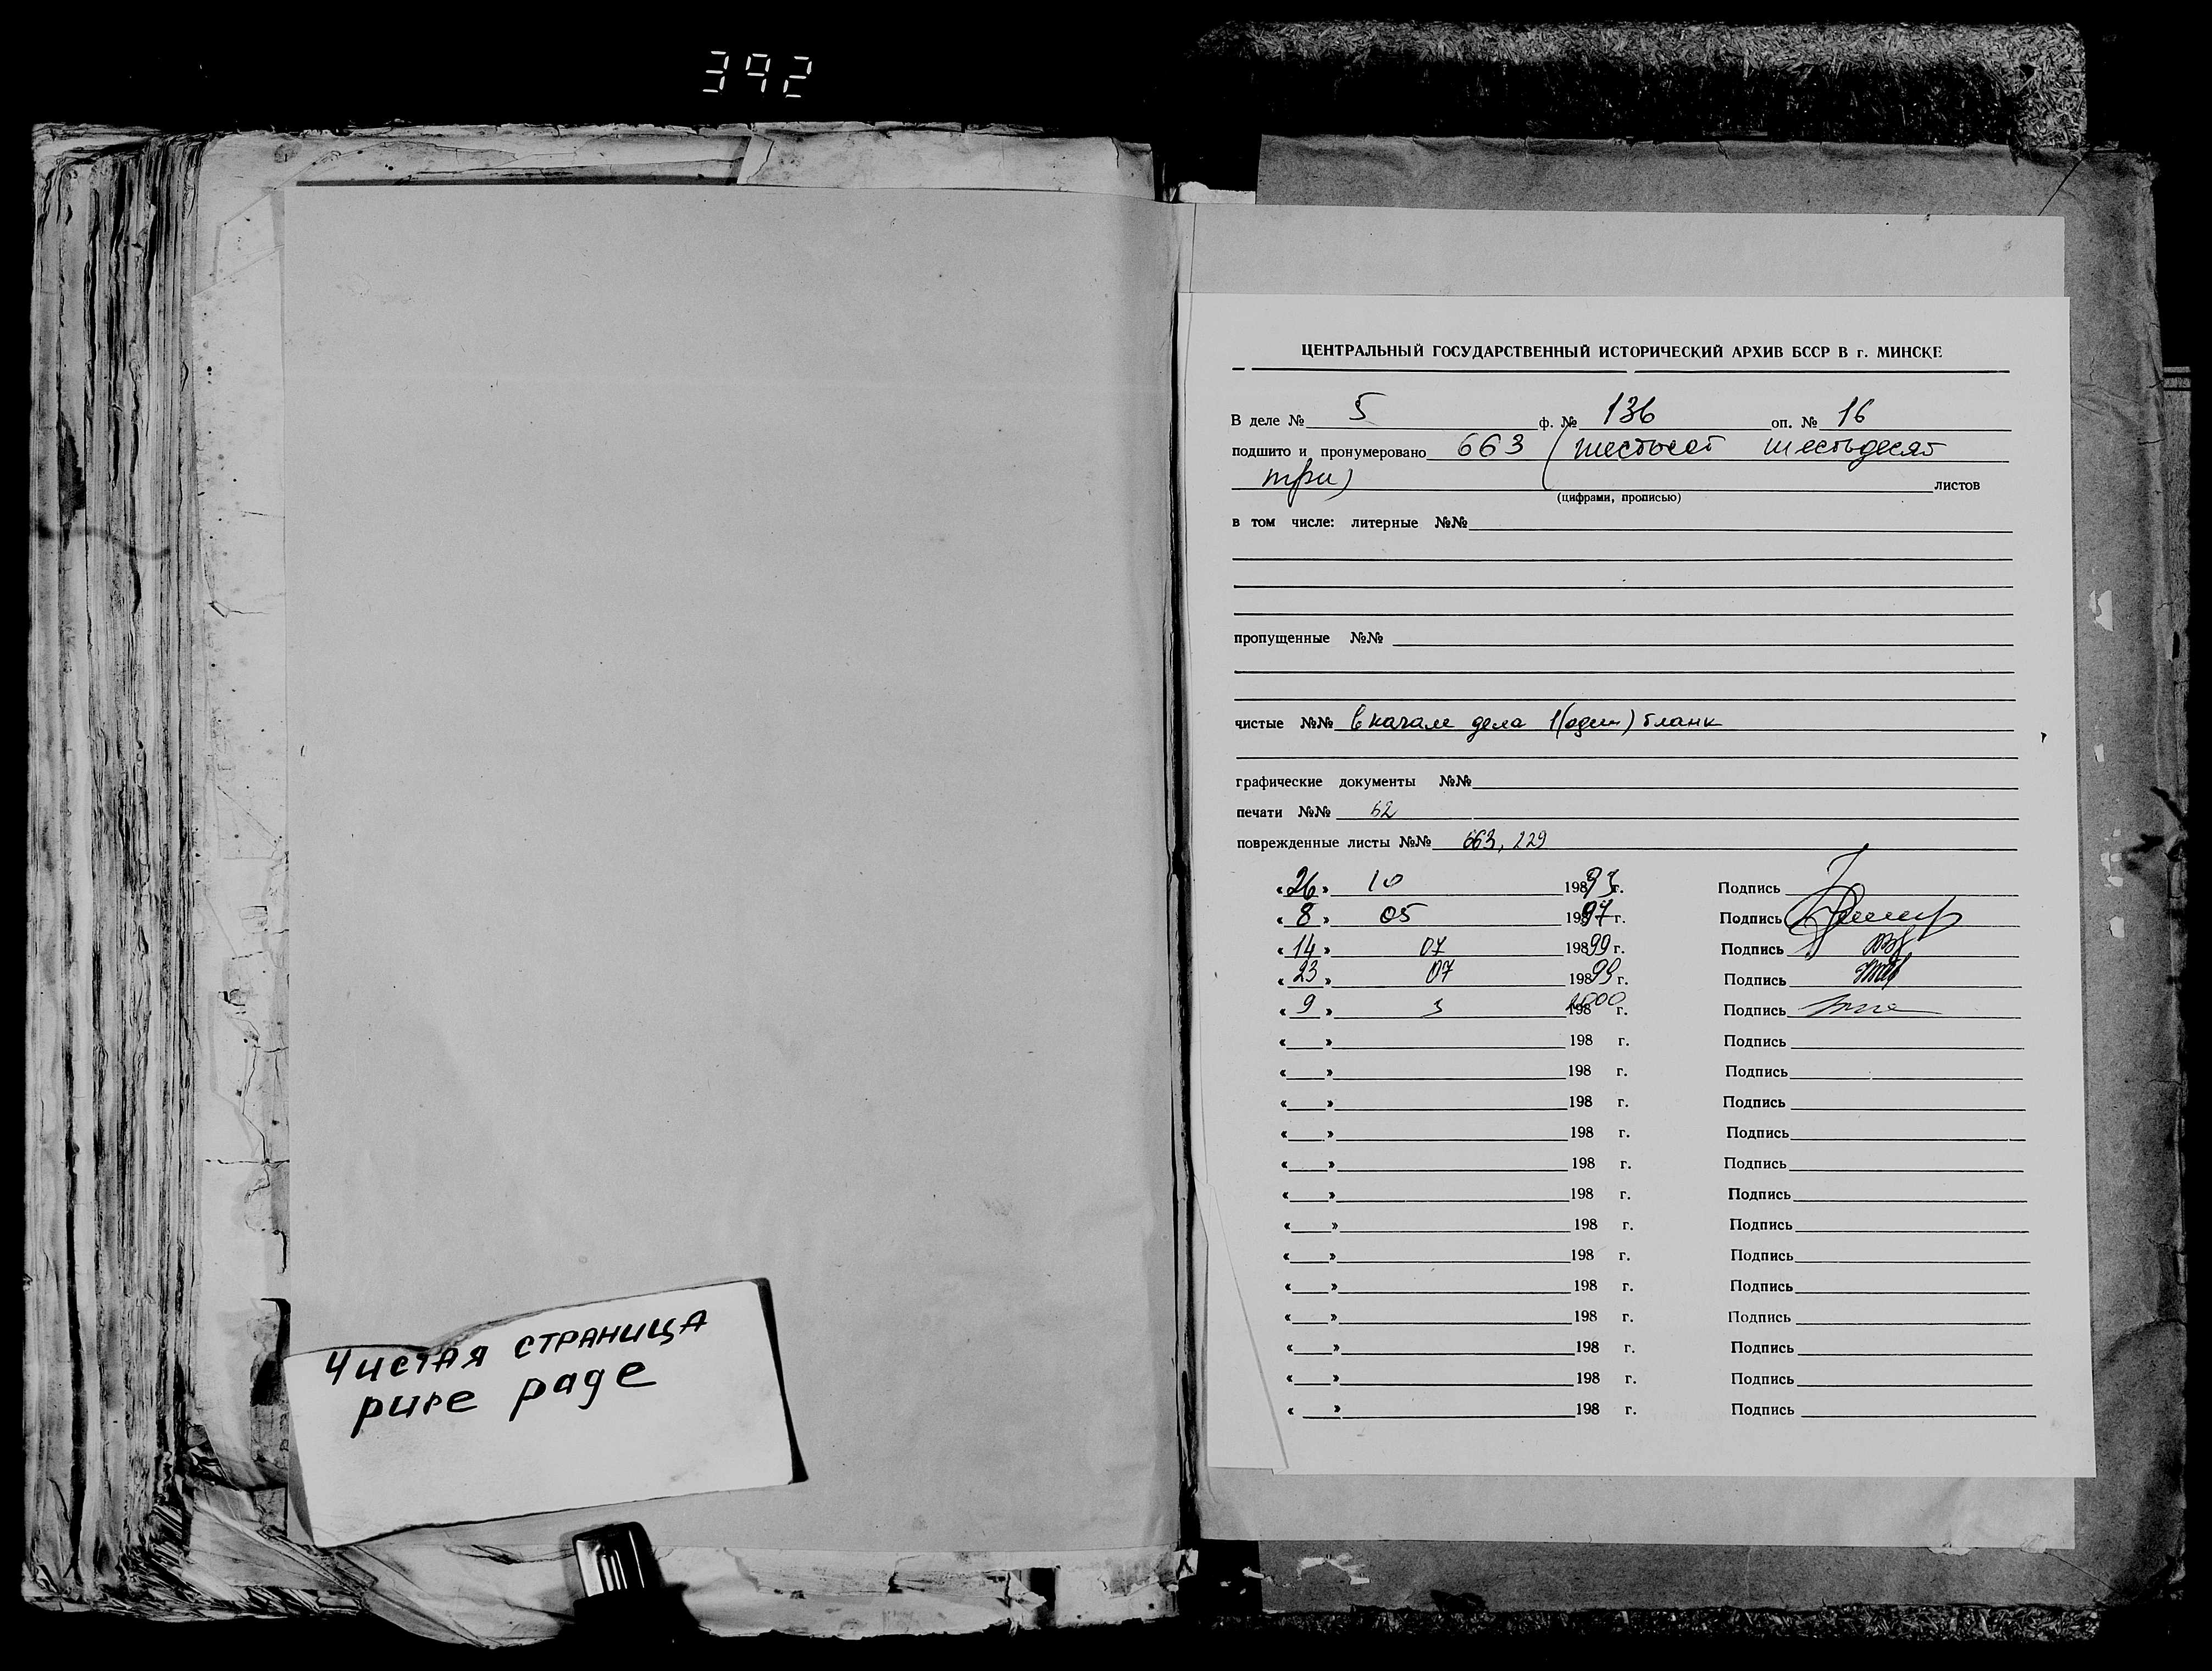 392
Чистая страница
pure page
ЦЕНТРАЛЬНЫЙ ГОСУДАРСТВЕННЫЙ ИСТОРИЧЕСКИЙ АРХИВ БССР В г. МИНСКЕ
В деле № 5 ф. № 136 оп. № 16
подшито и пронумеровано 663 (шестьсот шестьдесят
три) листов
(цифрами, прописью)
в том числе: литерные №№
пропущенные №№
чистые №№ в начале дела 1 (один) бланк
графические документы №№
печати №№ 62
поврежденные листы №№ 663, 229
«26» 10 19893 г. Подпись
«8» 05 19897 г. Подпись
«14» 07 19899 г. Подпись
«23» 07 19899 г. Подпись
«9» 3 2000 198 г. Подпись
« » 198 г. Подпись
« » 198 г. Подпись
« » 198 г. Подпись
« » 198 г. Подпись
« » 198 г. Подпись
« » 198 г. Подпись
« » 198 г. Подпись
« » 198 г. Подпись
« » 198 г. Подпись
« » 198 г. Подпись
« » 198 г. Подпись
« » 198 г. Подпись
« » 198 г. Подпись